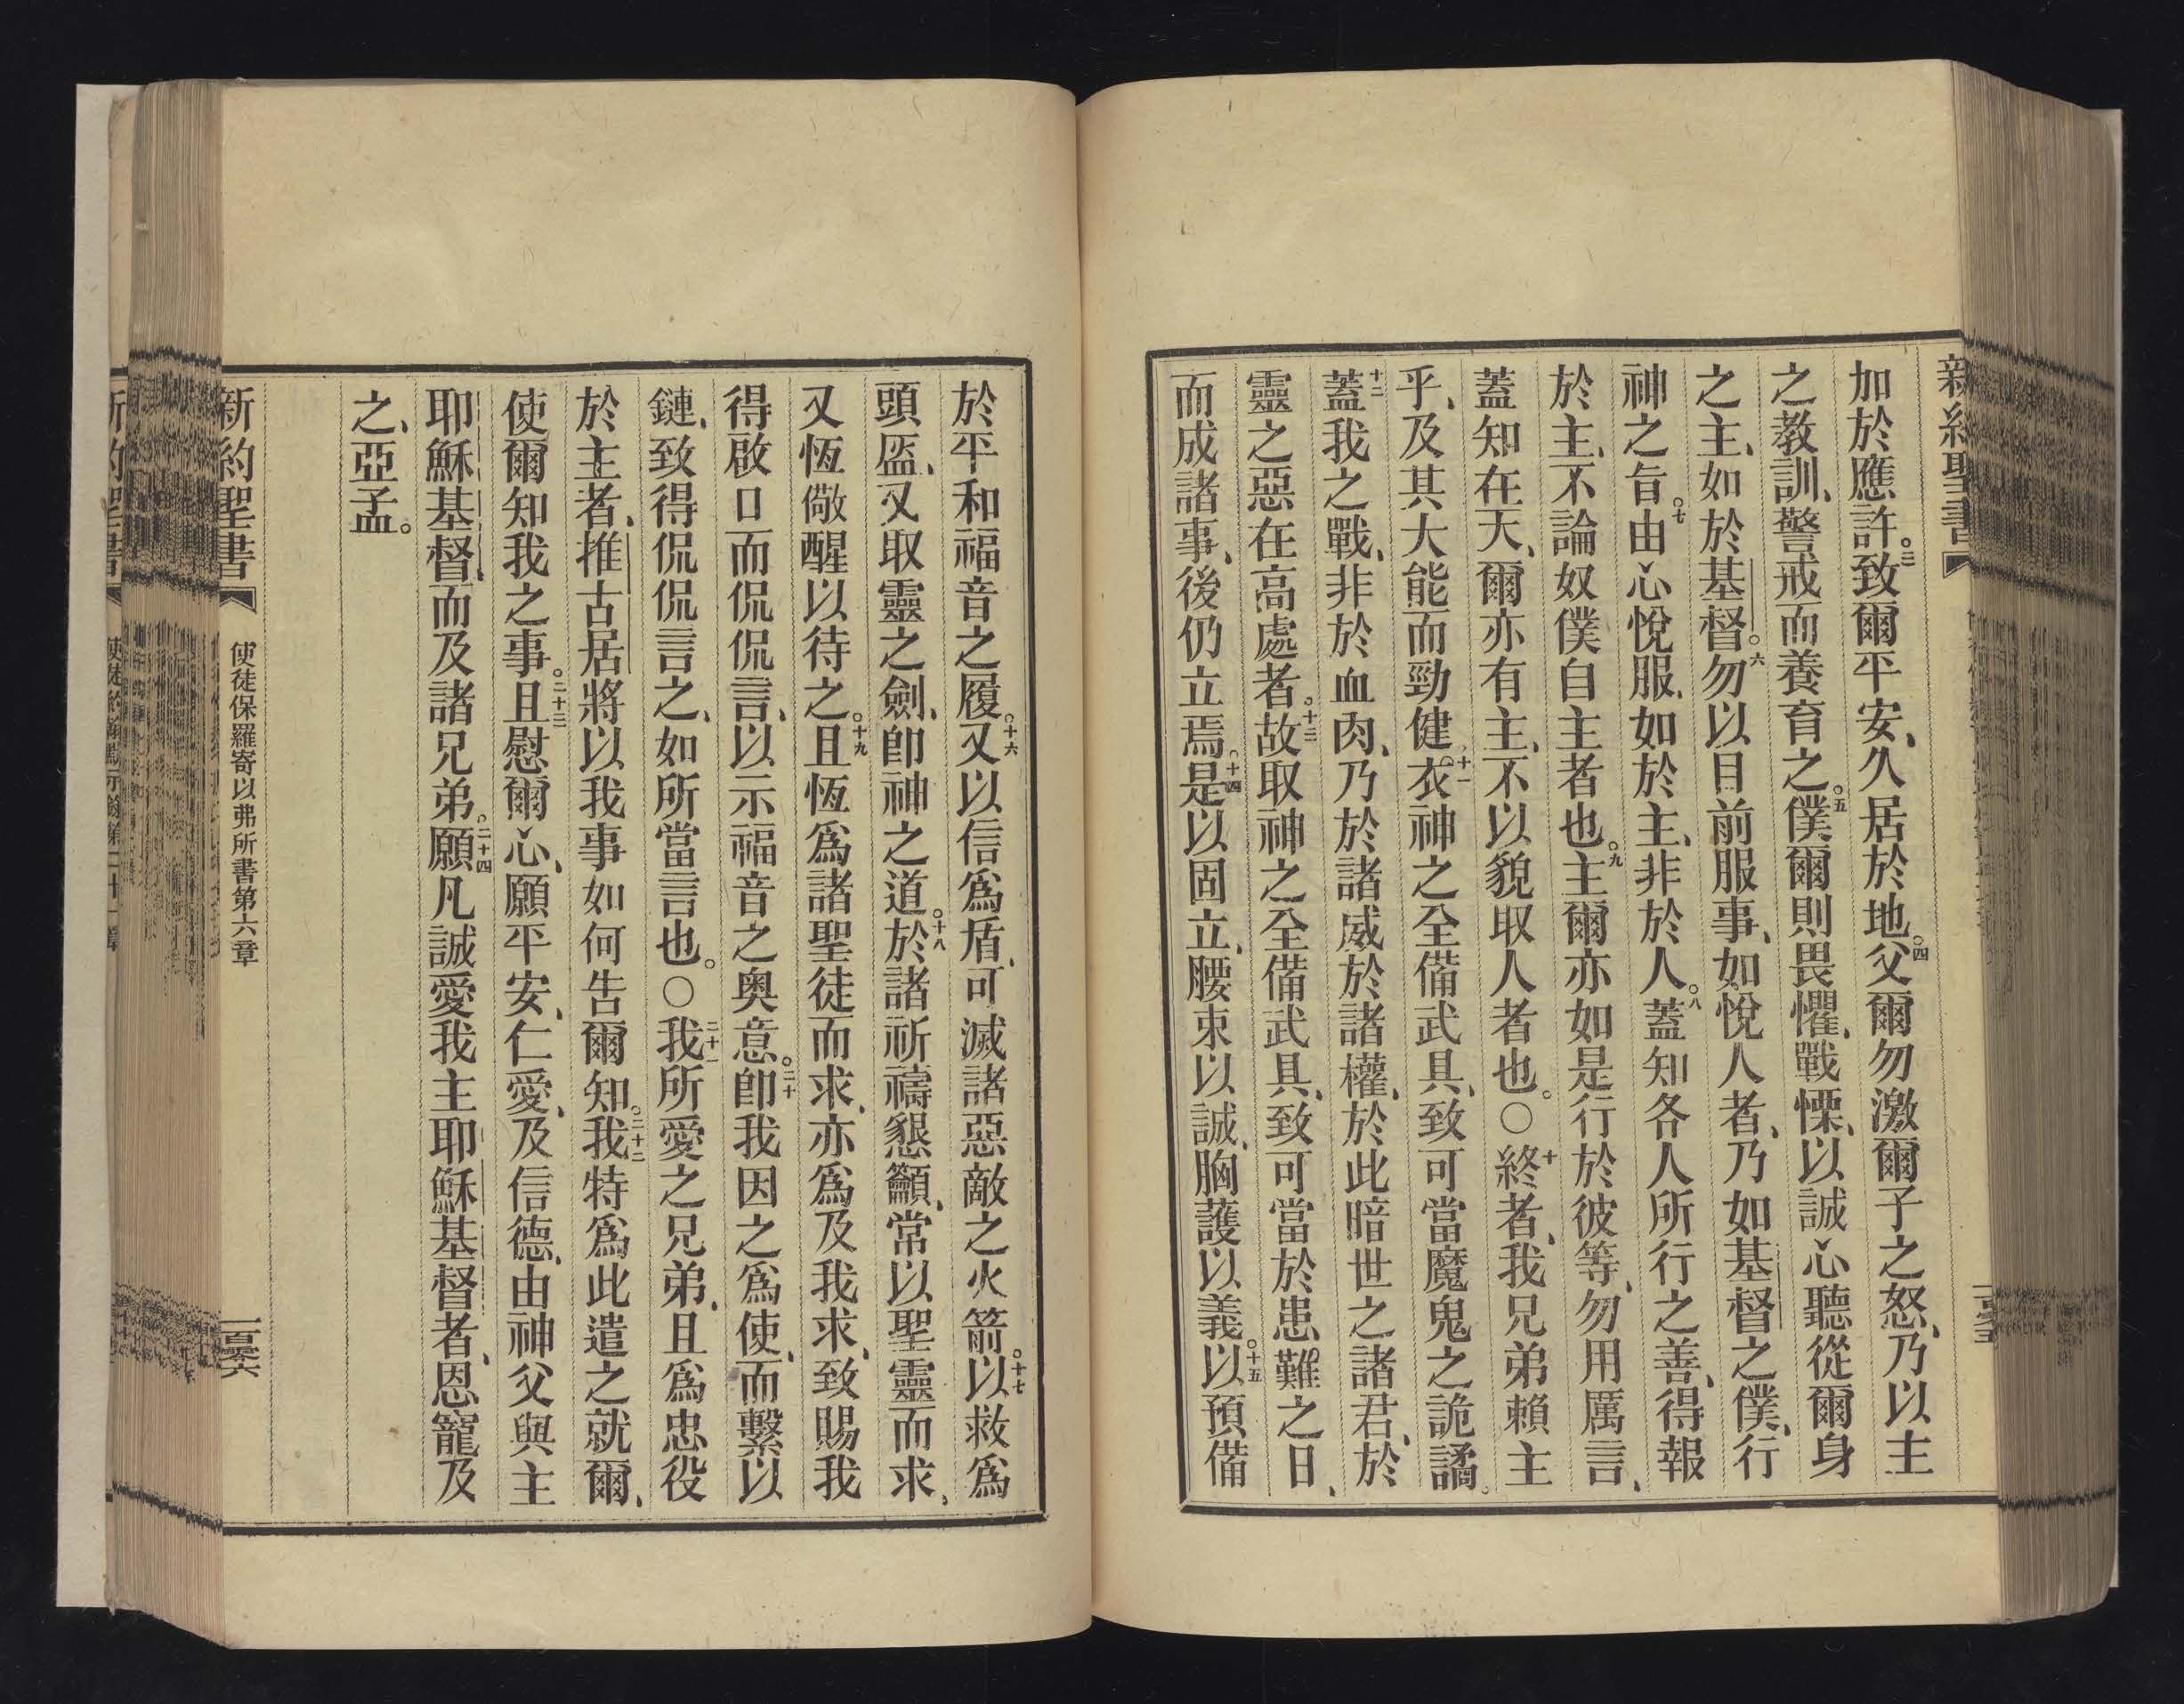 新約聖書
加於應許。三致爾平安、久居於地。四父爾勿激爾子之怒、乃以主
之教訓、警戒而養育之。五僕爾則畏懼、戰慄、以誠心聽從爾身
之主、如於基督。六勿以目前服事、如悅人者、乃如基督之僕、行
神之旨。七由心悅服、如於主、非於人。八蓋知各人所行之善、得報
於主、不論奴僕自主者也。九主爾亦如是行於彼等、勿用厲言、
蓋知在天、爾亦有主、不以貌取人者也。〇十終者、我兄弟賴主
乎、及其大能而勁健。十一衣神之全備武具、致可當魔鬼之詭譎。
十二蓋我之戰、非於血肉、乃於諸威於諸權、於此暗世之諸君、於
靈之惡在高處者。十三故取神之全備武具、致可當於患難之日、
而成諸事、後仍立焉。十四是以固立、腰束以誠、胸護以義。十五以預備
於平和福音之履。十六又以信爲盾、可滅諸惡敵之火箭。十七以救爲
頭盔、又取靈之劍、卽神之道。十八於諸祈禱懇籲、常以聖靈而求、
又恆儆醒以待之。十九且恆爲諸聖徒而求、亦爲及我求、致賜我
得啟口而侃侃言、以示福音之奧意。二十卽我因之爲使、而繫以
鏈、致得侃侃言之、如所當言也。〇二十一我所愛之兄弟、且爲忠役
於主者、推古居將以我事如何告爾知。二十二我特爲此遣之就爾、
使爾知我之事。二十三且慰爾心、願平安、仁愛、及信德、由神父與主
耶穌基督、而及諸兄弟。二十四願凡誠愛我主耶穌基督者、恩寵及
之、亞孟。
新約聖書
使徒保羅寄以弗所書第六章
一百零六